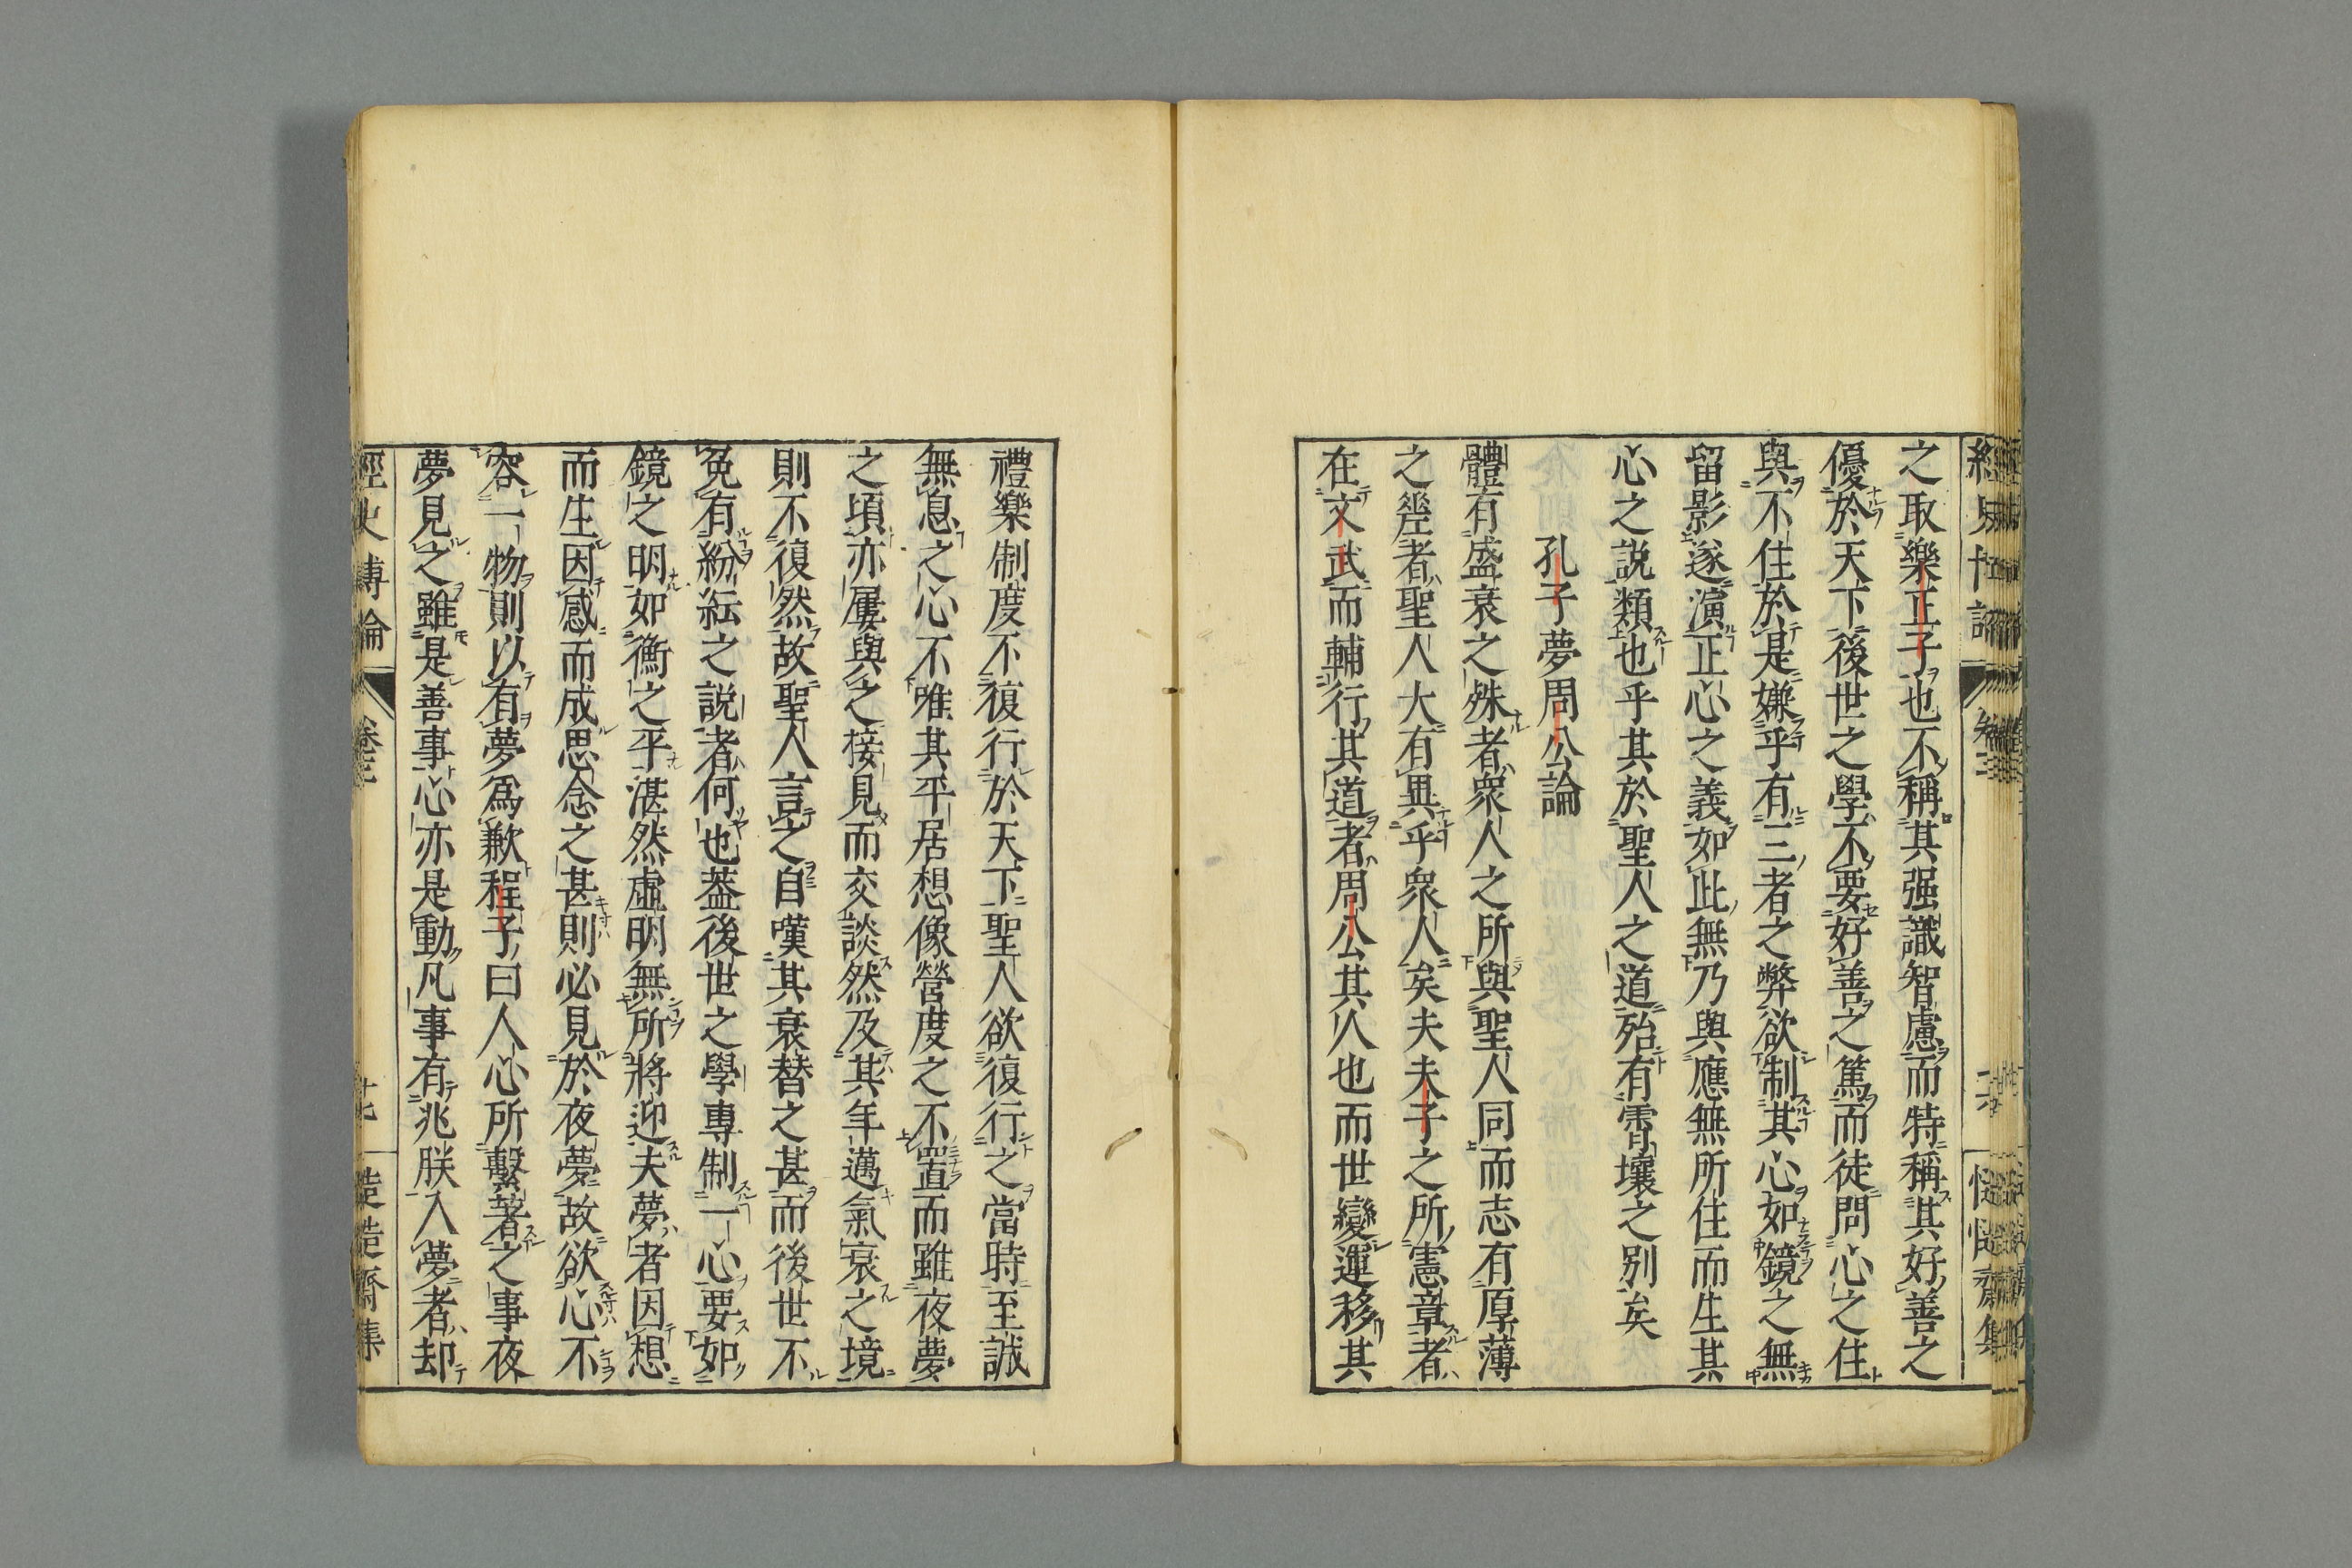 之取樂正子也不稱其强識智慮而特稱其好善之
優於天下後世之學不要好善之篤而徒問心之住
與不住於是嫌乎有三者之弊欲制其心如鏡之無
留影遂演正心之義如此無乃與應無所住而生其
心之説類也乎其於聖人之道殆有霄壤之別矣
孔子夢周公論
體有盛衰之殊者衆人之所與聖人同而志有厚薄
之差者聖人大有異乎衆人矣夫夫子之所憲章者
在文武而輔行其道者周公其人也而世變運移其
禮樂制度不復行於天下聖人欲復行之當時至誠
無息之心不唯其平居想像營度之不置而雖夜夢
之頃亦屢與之接見而交談然及其年邁氣衰之境
則不復然故聖人言之自嘆其衰替之甚而後世不
免有紛紜之説者何也葢後世之學專制一心要如
鏡之明如衡之平湛然虛明無所將迎夫夢者因想
而生因感而成思念之甚則必見於夜夢故欲心不
容一物則以有夢爲歉程子曰人心所繫著之事夜
夢見之雖是善事心亦是動凡事有兆朕入夢者却
經史博論
卷三
十七
慥慥齋集